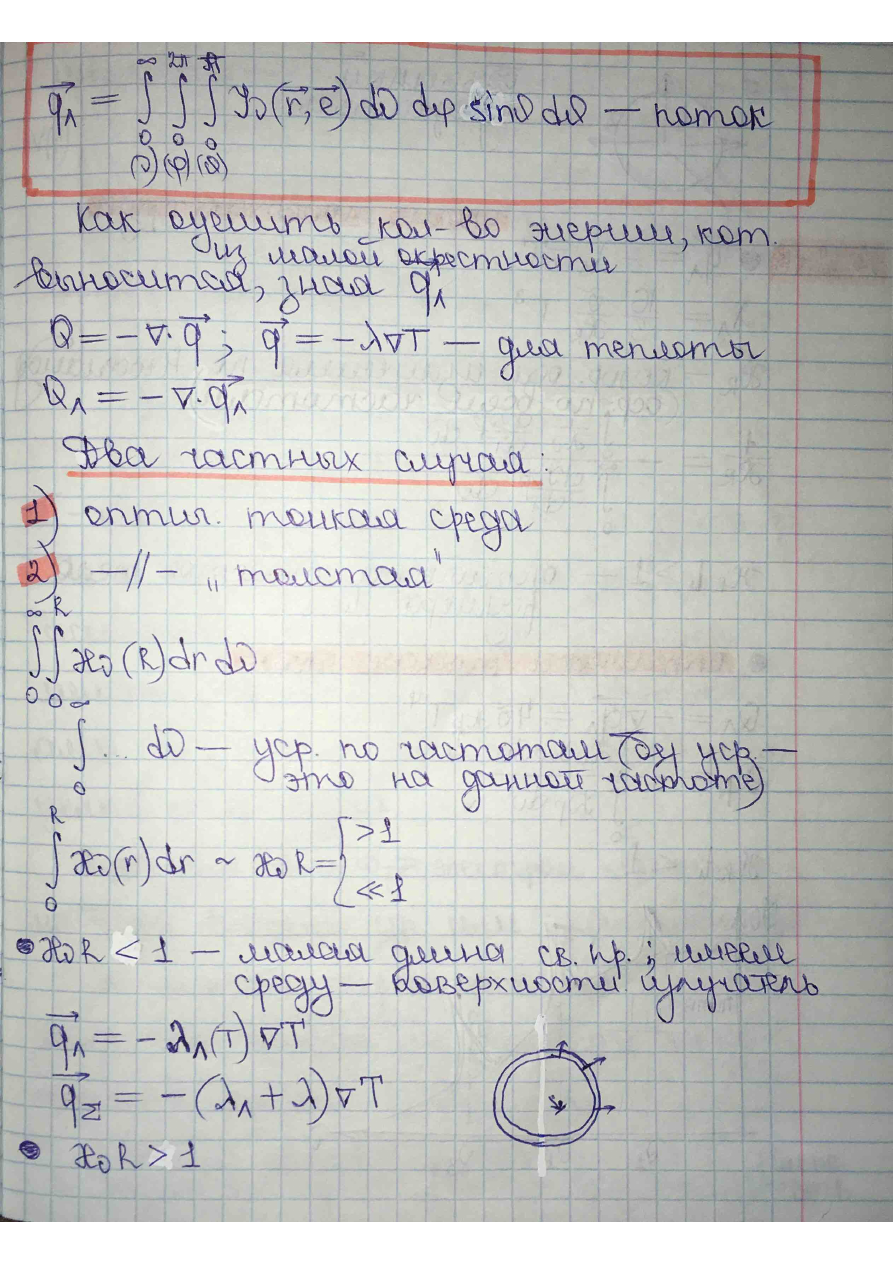 q⃗_Λ = ∫₀^∞ ∫₀^2π ∫₀^π J_ν(r⃗, e⃗) dν dφ sinθ dθ — поток
(ν) (φ) (θ)
Как оценить кол-во энергии, кот.
из малой окрестности
выносится, зная q⃗_Λ
Q = -∇·q⃗ ; q⃗ = -λ∇T — для теплоты
Q_Λ = -∇·q⃗_Λ
Два частных случая:
1) оптич. тонкая среда
2) —//— „толстая"
∫₀^∞ ∫₀^R ϰ_ν(R) dr dν
∫₀^∞ ... dν — уср. по частотам (оу уср. —
это на данной частоте)
∫₀^R ϰ_ν(r) dr ~ ϰ_ν R = { >1
≪1
• ϰ_ν R < 1 — малая длина св. пр.; имеем
среду — поверхности излучатель
q⃗_Λ = -λ_Λ(T) ∇T
q⃗_Σ = -(λ_Λ + λ) ∇T
• ϰ_ν R > 1